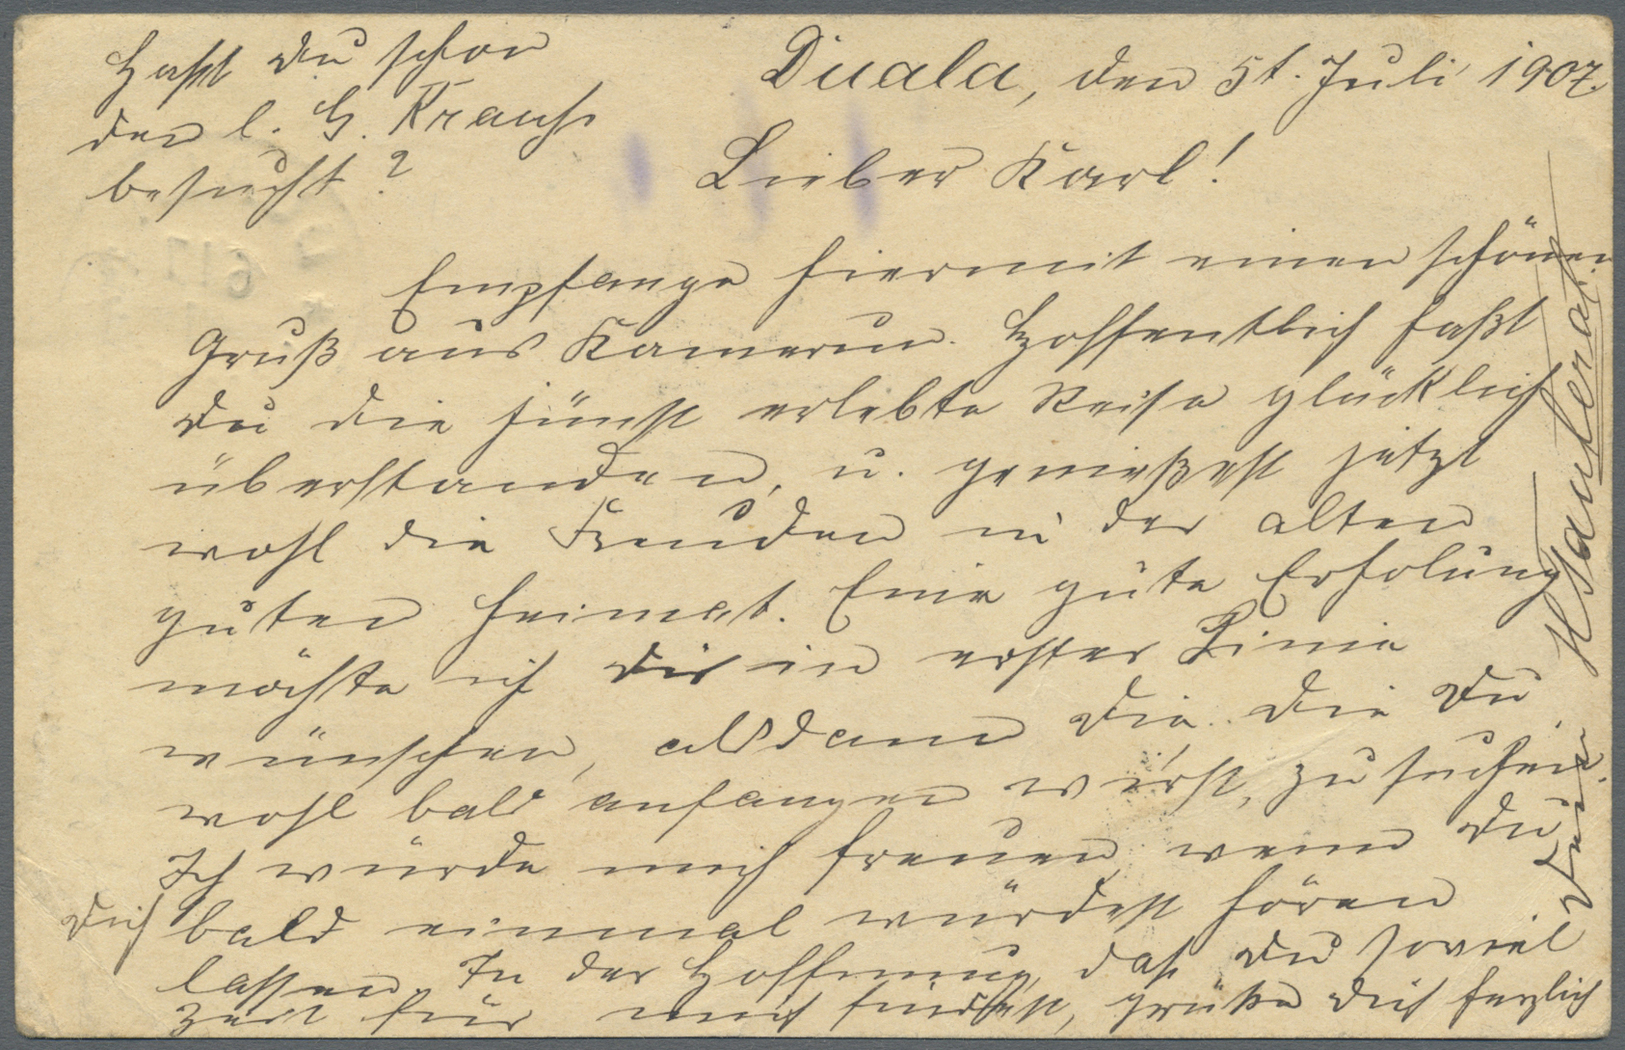 Hast Du schon
den l. G. Krauss
besucht?
Duala, den 5t. Juli 1907.
Lieber Karl!
Empfange hiermit einen schönen
Gruß aus Kamerun. Hoffentlich hast
Du die jüngst erlebte Reise glücklich
überstanden, u. genießest jetzt
wohl die Freuden in der alten
guten Heimat. Eine gute Erholung
möchte ich Dir in erster Linie
wünschen, alsdann die.. die Du
wohl bald anfangen wirst, zu suchen.
Ich würde mich freuen, wenn Du
Dich bald einmal würdest hören
lassen. In der Hoffnung, daß Du soviel
Zeit für mich findest, grüße Dich herzlich
Dein